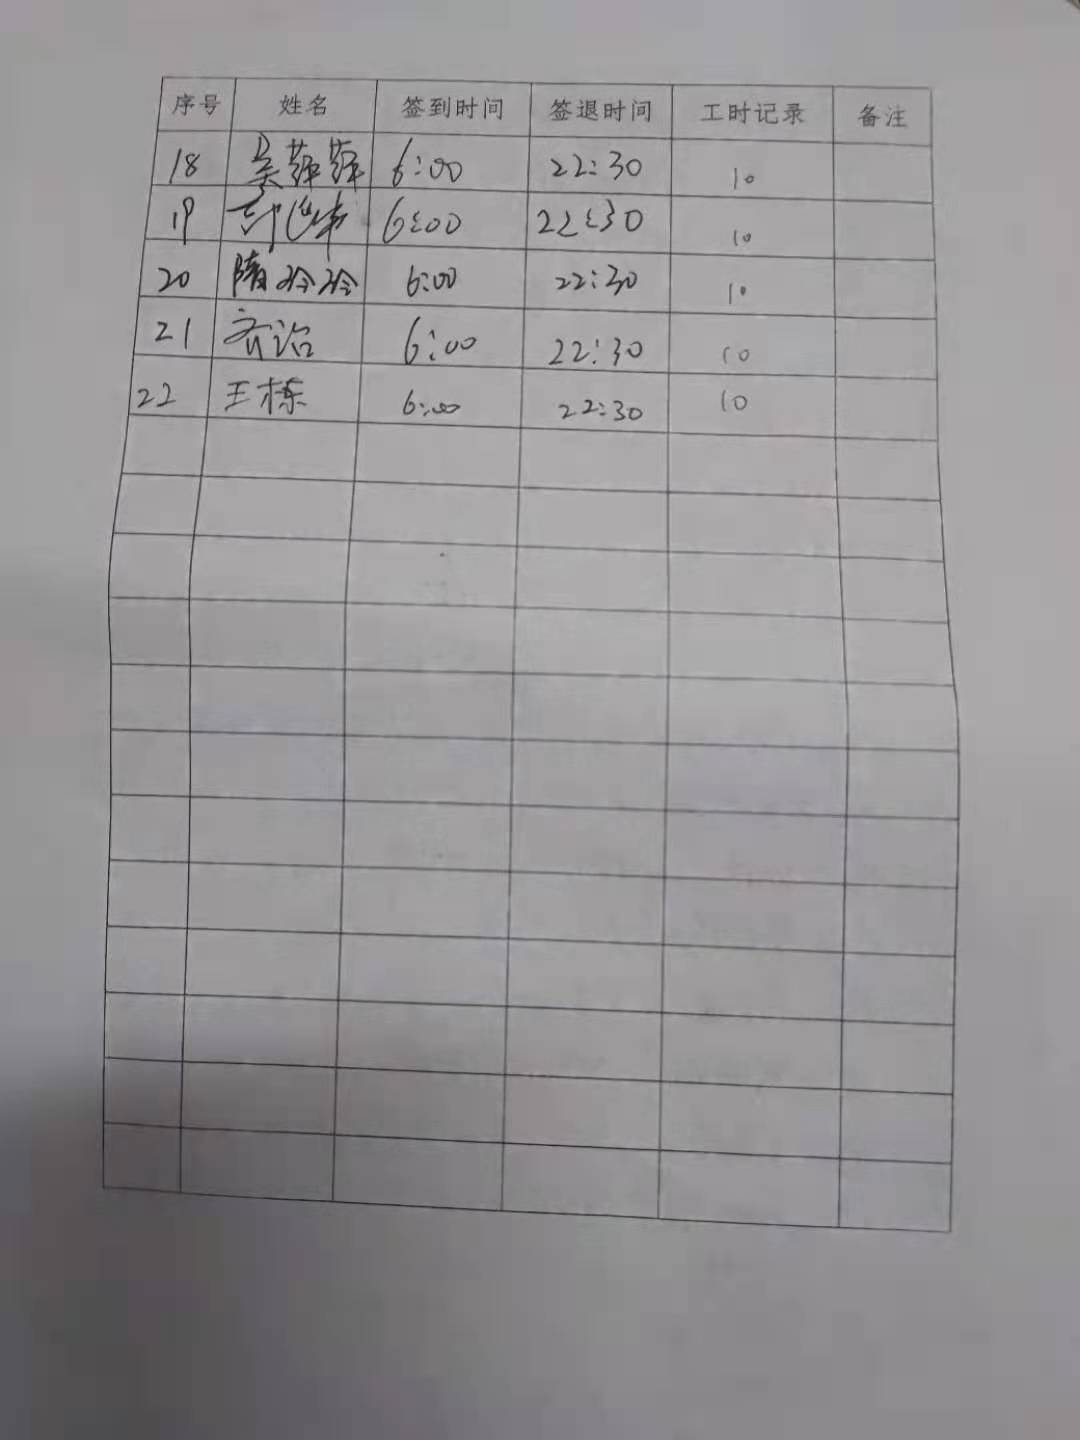 序号 姓名 签到时间 签退时间 工时记录 备注
18 吴萍萍 6:00 22:30 10
19 6:00 22:30 10
20 隋玲玲 6:00 22:30 10
21 齐治 6:00 22:30 10
22 王栋 6:00 22:30 10